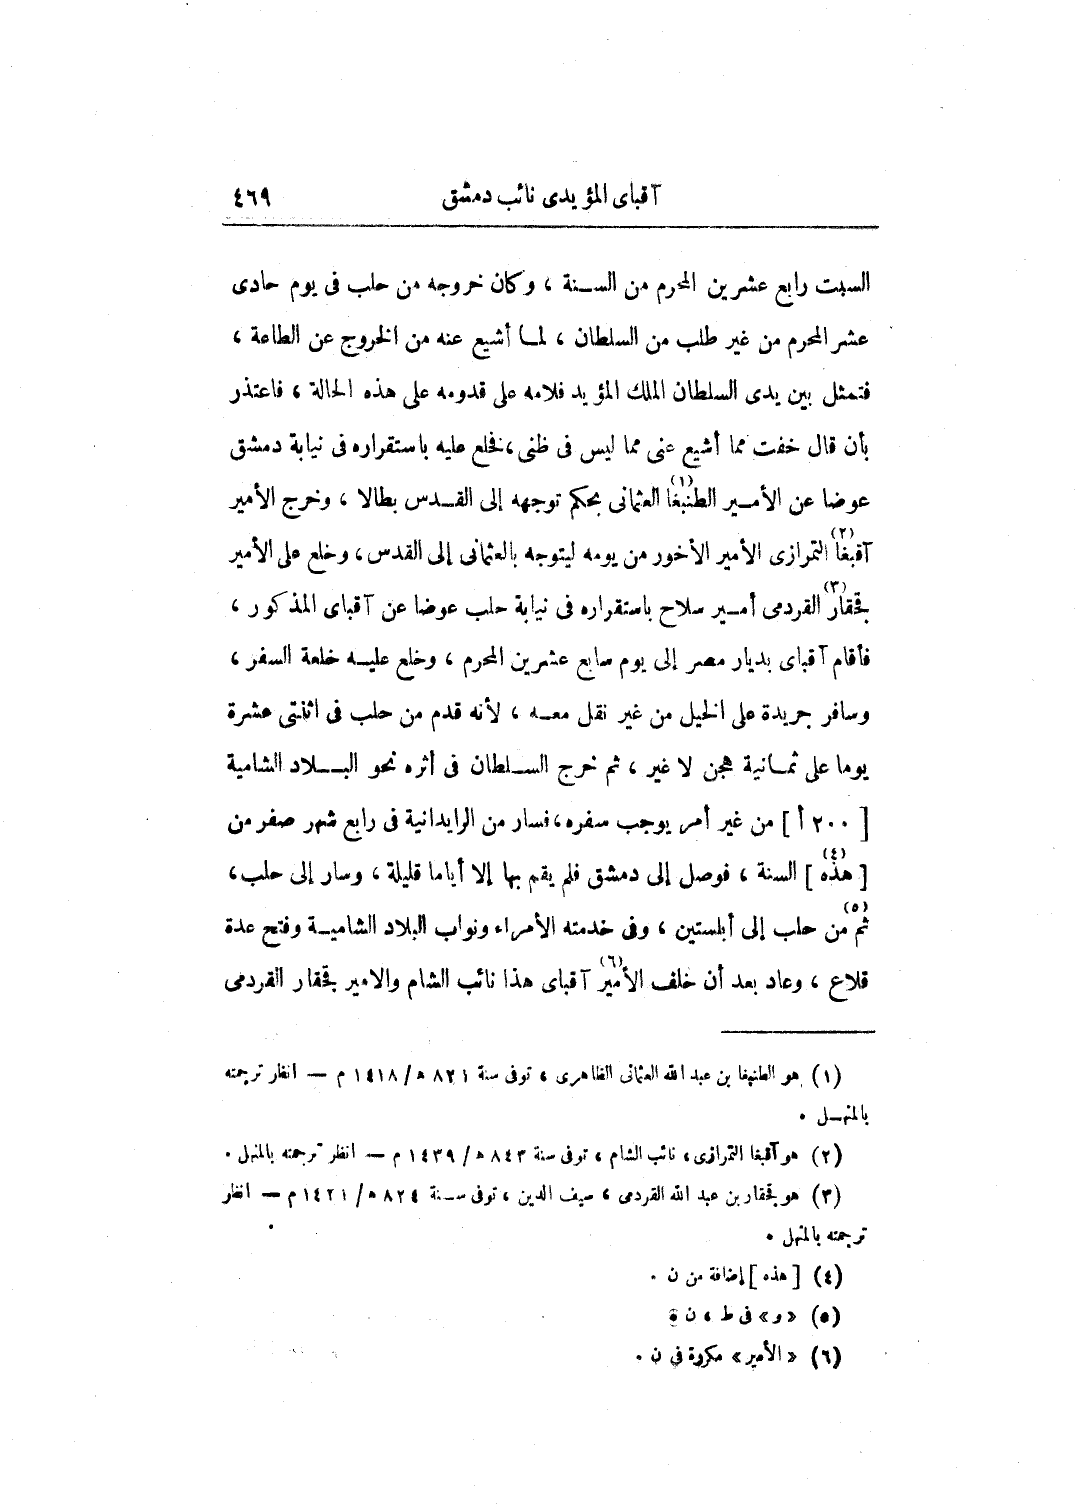 آقباى المؤيدى نائب دمشق ٤٦٩
السبت رابع عشرين المحرم من السـنة ، وكان خروجه من حلب فى يوم حادى
عشر المحرم من غير طلب من السلطان ، لمـا أشيع عنه من الخروج عن الطاعة ،
فتمثل بين يدى السلطان الملك المؤيد فلامه على قدومه على هذه الحالة ، فاعتذر
بأن قال خفت مما أشيع عنى مما ليس فى ظنى ، فخلع عليه باستقراره فى نيابة دمشق
عوضا عن الأمـير الطنبغا(١) العثمانى بحكم توجهه إلى القـدس بطالا ، وخرج الأمير
آقبغا(٢) التمرازى الأمير الأخور من يومه ليتوجه بالعثمانى إلى القدس ، وخلع على الأمير
قجقار(٣) القردمى أمـير سلاح باستقراره فى نيابة حلب عوضا عن آقباى المذكور ،
فأقام آقباى بديار مصر إلى يوم سابع عشرين المحرم ، وخلع عليـه خلعة السفر ،
وسافر جريدة على الخيل من غير نقل معـه ، لأنه قدم من حلب فى اثنتى عشرة
يوما على ثمـانية هجن لا غير ، ثم خرج السـلطان فى أثره نحو البـلاد الشامية
[ ٢٠٠ أ ] من غير أمر يوجب سفره ، فسار من الرايدانية فى رابع شهر صفر من
[ هذه(٤) ] السنة ، فوصل إلى دمشق فلم يقم بها إلا أياما قليلة ، وسار إلى حلب ،
ثم(٥) من حلب إلى أبلستين ، وفى خدمته الأمراء ونواب البلاد الشاميـة وفتح عدة
قلاع ، وعاد بعد أن خلف الأمير(٦) آقباى هذا نائب الشام والامير قجقار القردمى
(١) هو الطنبغا بن عبد الله العثمانى الظاهرى ، توفى سنة ٨٢١ ه/ ١٤١٨ م — انظر ترجمته
بالمنهـل .
(٢) هو آقبغا التمرازى ، نائب الشام ، توفى سنة ٨٤٣ ه/ ١٤٣٩ م — انظر ترجمته بالمنهل .
(٣) هو قجقار بن عبد الله القردمى ، سيف الدين ، توفى سـنة ٨٢٤ ه/ ١٤٢١ م — انظر
ترجمته بالمنهل .
(٤) [ هذه ] إضافة من ن .
(٥) « و » فى ط ، ن
(٦) « الأمير » مكررة فى ن .